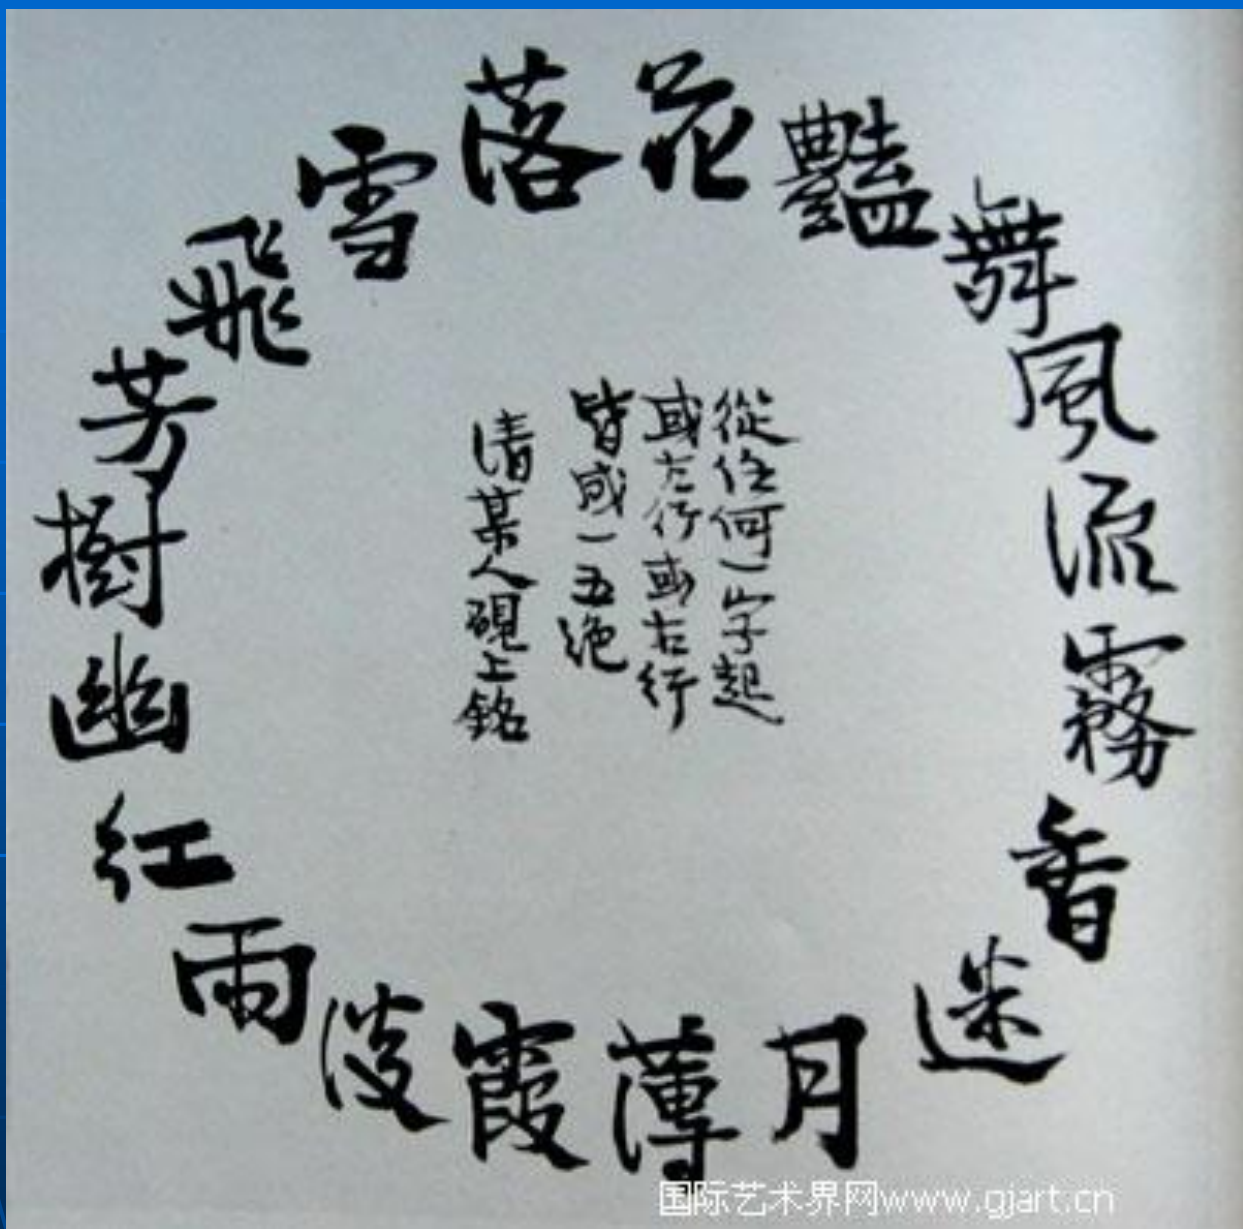 落花豔舞風流霧香迷月薄霞淡雨紅幽樹芳飛雪
從任何一字起
或左行或右行
皆成一五絕
清某人硯上銘
国际艺术界网www.gjart.cn